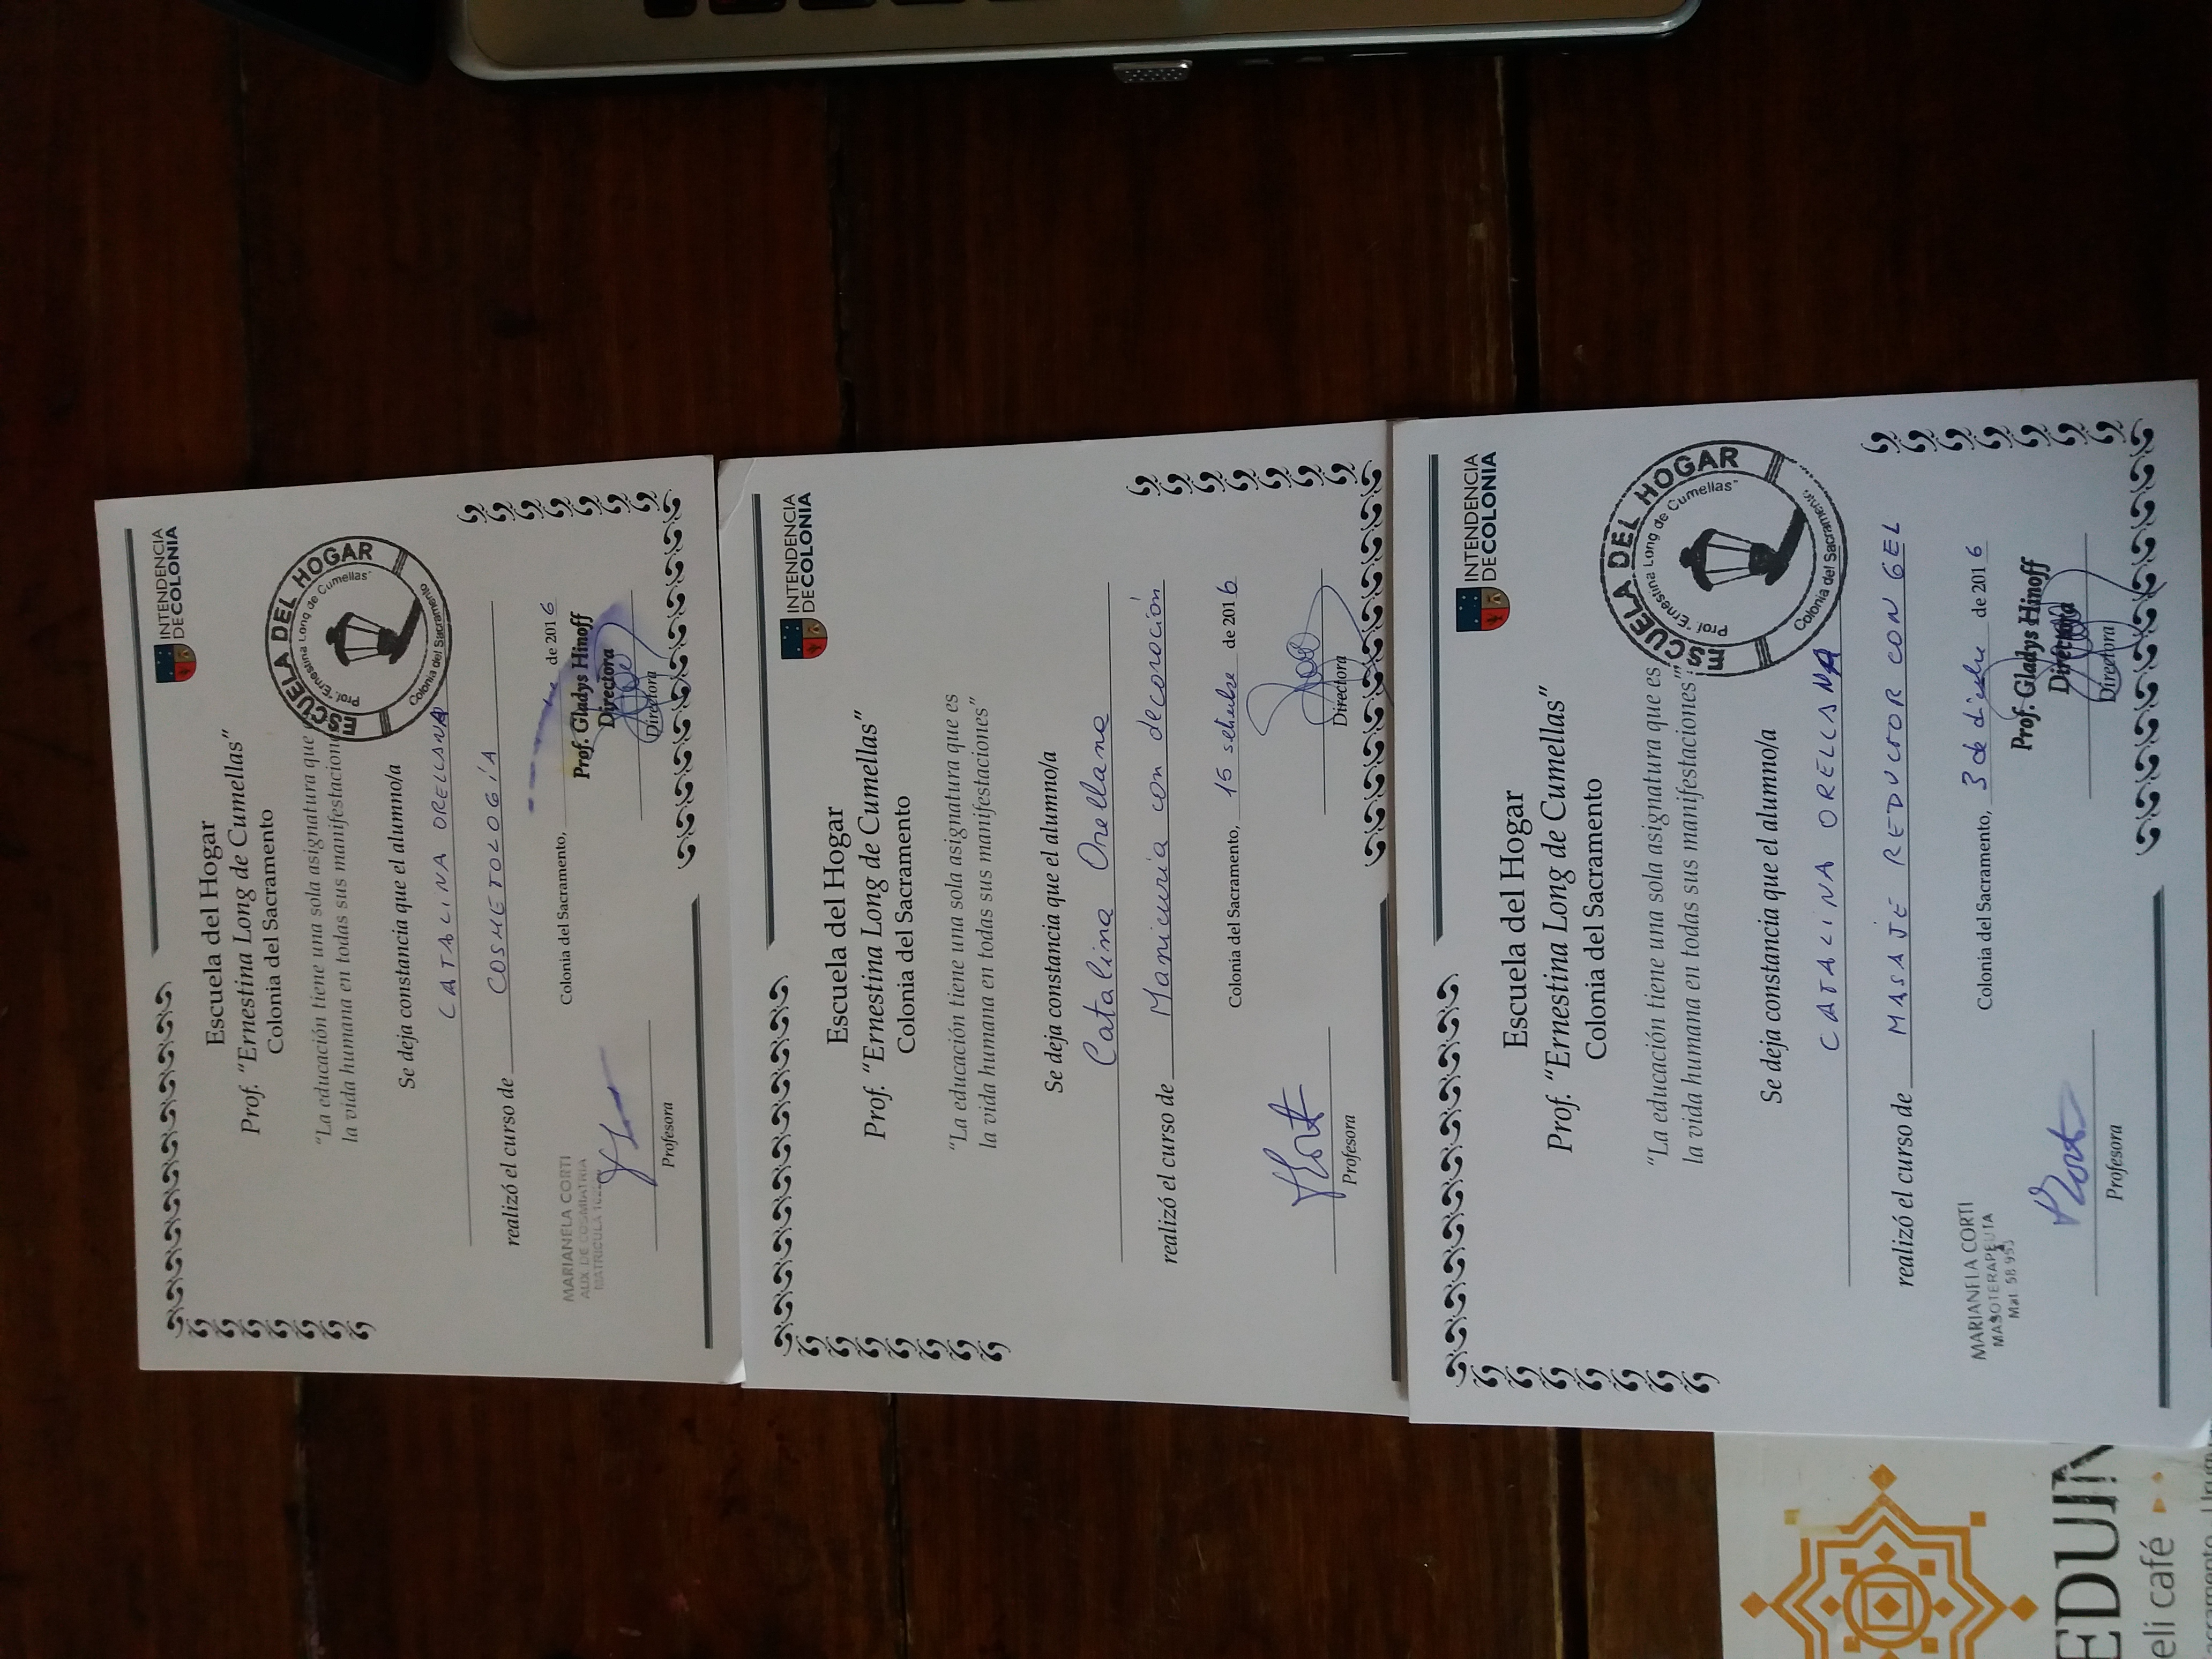 INTENDENCIA
DE COLONIA
Escuela del Hogar
Prof. “Ernestina Long de Cumellas”
Colonia del Sacramento
“La educación tiene una sola asignatura que
la vida humana en todas sus manifestacione
ESCUELA DEL HOGAR
Prof. "Ernestina Long de Cumellas"
Colonia del Sacramento
Se deja constancia que el alumno/a
CATALINA ORELLANA
realizó el curso de COSMETOLOGÍA
Colonia del Sacramento, de 2016
MARIANELA CORTI
AUX. DE COSMIATRIA
MATRICULA
Prof. Gladys Hinoff
Directora
Profesora
Directora
INTENDENCIA
DE COLONIA
Escuela del Hogar
Prof. “Ernestina Long de Cumellas”
Colonia del Sacramento
“La educación tiene una sola asignatura que es
la vida humana en todas sus manifestaciones”
Se deja constancia que el alumno/a
Catalina Orellana
realizó el curso de Manicuría con decoración
Colonia del Sacramento, 15 setiembre de 2016
Profesora
Directora
INTENDENCIA
DE COLONIA
Escuela del Hogar
Prof. “Ernestina Long de Cumellas”
Colonia del Sacramento
“La educación tiene una sola asignatura que es
la vida humana en todas sus manifestaciones”
ESCUELA DEL HOGAR
Prof. "Ernestina Long de Cumellas"
Colonia del Sacramento
Se deja constancia que el alumno/a
CATALINA ORELLANA
realizó el curso de MASAJE REDUCTOR CON GEL
Colonia del Sacramento, 3 de diciembre de 2016
MARIANELA CORTI
MASOTERAPEUTA
Mat. 58 953
Prof. Gladys Hinoff
Directora
Profesora
Directora
EDUIN
eli café
acramento - Urugu